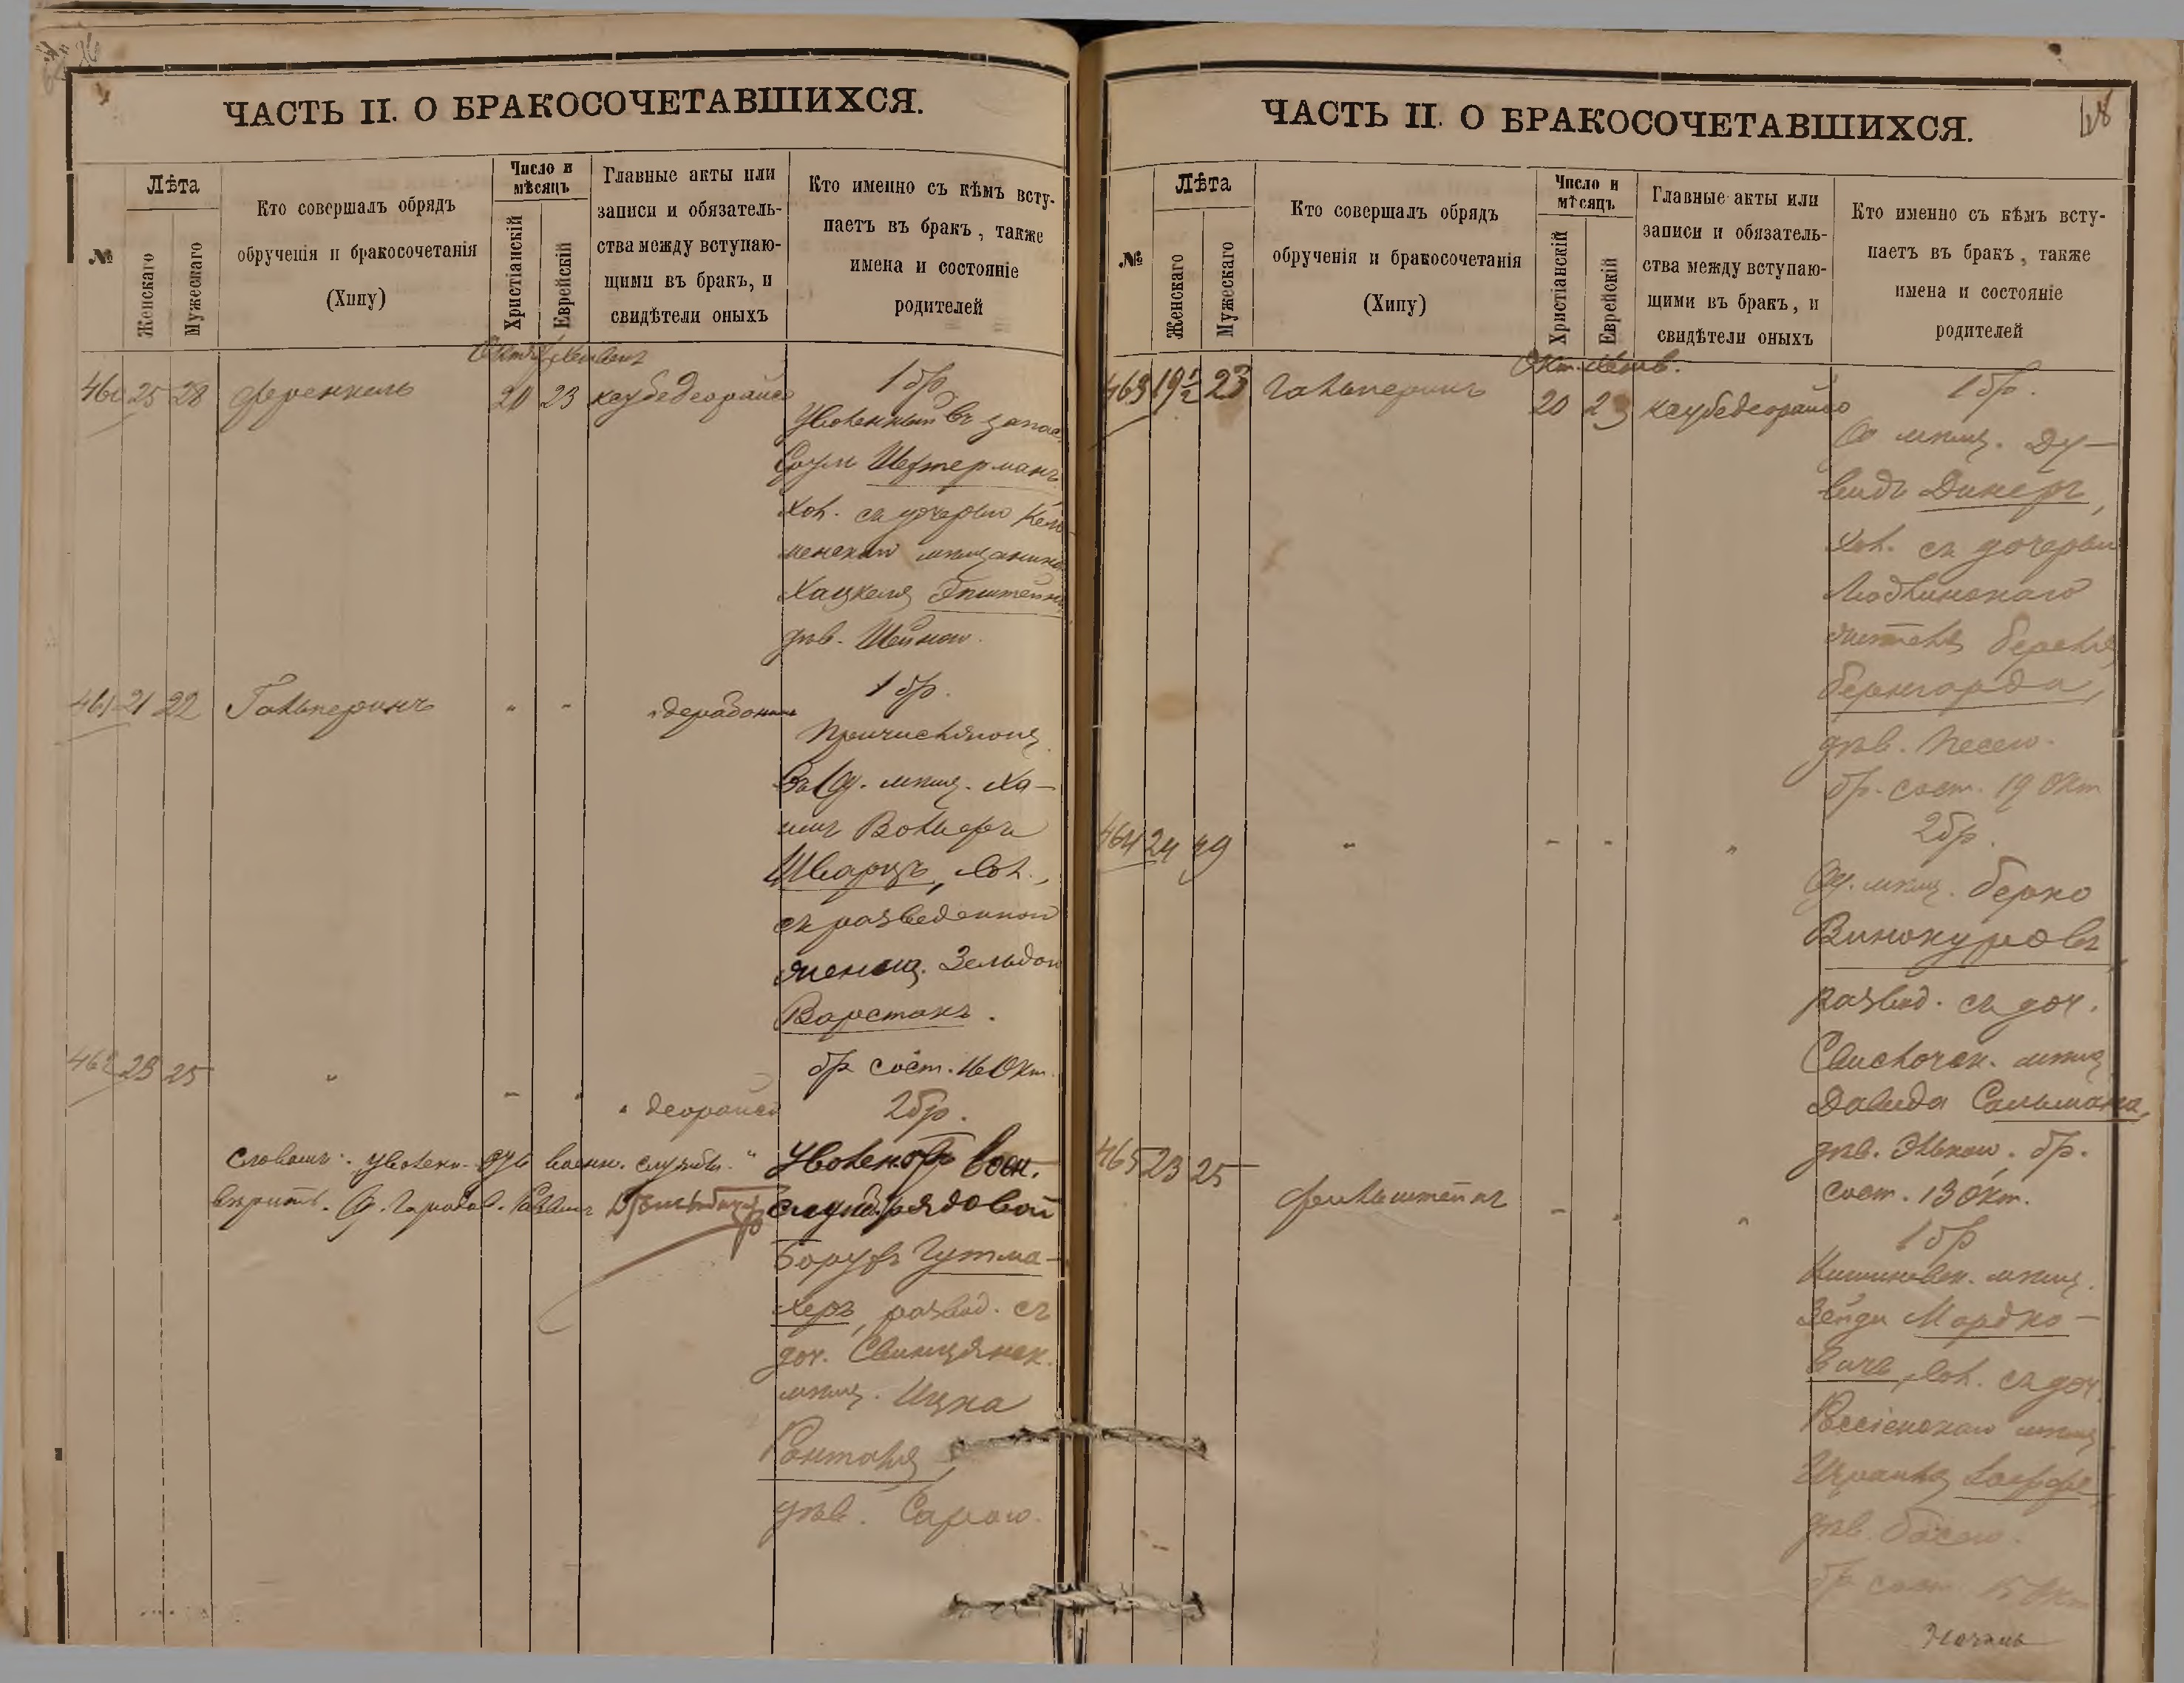 ЧАСТЬ II. О БРАКОСОЧЕТАВШИХСЯ.
№
Лѣта
Женскаго
Мужескаго
Кто совершалъ обрядъ
обрученія и бракосочетанія
(Хипу)
Число и
мѣсяцъ
Христіанскій
Еврейскій
Главные акты или
записи и обязатель-
ства между вступаю-
щими въ бракъ, и
свидѣтели оныхъ
Кто именно съ кѣмъ всту-
паетъ въ бракъ, также
имена и состояніе
родителей
460 25 28 Френкель 20 23
1 бр.
Уволенный въ запас
Сруль Шехтерманъ
хол. съ дочерью
мѣщанина
Хацкеля Эпштейна
дѣв. Шейною.
461 21 22 Гальперинъ " "
1 бр.
Причисляющ.
въ Од. мѣщ. Ха-
имъ Вольфъ
Шварцъ, хол.,
съ разведенной
женщ. Зельдою
Варстакъ.
бр. сост. 16 Окт.
462 23 25 " " " " деорайсо
2 бр.
Уволен. отъ воен.
служб. рядовой
Борухъ Гутма-
херъ, развод. съ
доч. Свинцянск.
мѣщ. Ицка
дѣв. Сарою.
словамъ: уволен. отъ воен. службы "
вѣрить. Од. Городов. Раввинъ
ЧАСТЬ II. О БРАКОСОЧЕТАВШИХСЯ.
68
№
Лѣта
Женскаго
Мужескаго
Кто совершалъ обрядъ
обрученія и бракосочетанія
(Хипу)
Число и
мѣсяцъ
Христіанскій
Еврейскій
Главные акты или
записи и обязатель-
ства между вступаю-
щими въ бракъ, и
свидѣтели оныхъ
Кто именно съ кѣмъ всту-
паетъ въ бракъ, также
имена и состояніе
родителей
Окт.
463 19½ 23 Гальперинъ 20 23
1 бр.
Од. мѣщ. Ду-
видъ Динеръ,
хол. съ дочерью
Люблинскаго
жителя Береля
Бернгарда,
дѣв. Песею.
бр. сост. 19 Окт
464 24 29 " " " "
2 бр.
Од. мѣщ. Берко
Винокуровъ
развод. съ доч.
Свислочск. мѣщ.
Давида Сальмана,
дѣв. Элькою. бр.
сост. 13 Окт.
465 23 25 Финкельштейнъ " " "
1 бр
Кишиневск. мѣщ.
Зейди Мордко-
вичъ, хол. съ доч.
Россіенскаго мѣщ.
Израиля Іоффе,
дѣв. Басею.
бр. сост. 15 Окт